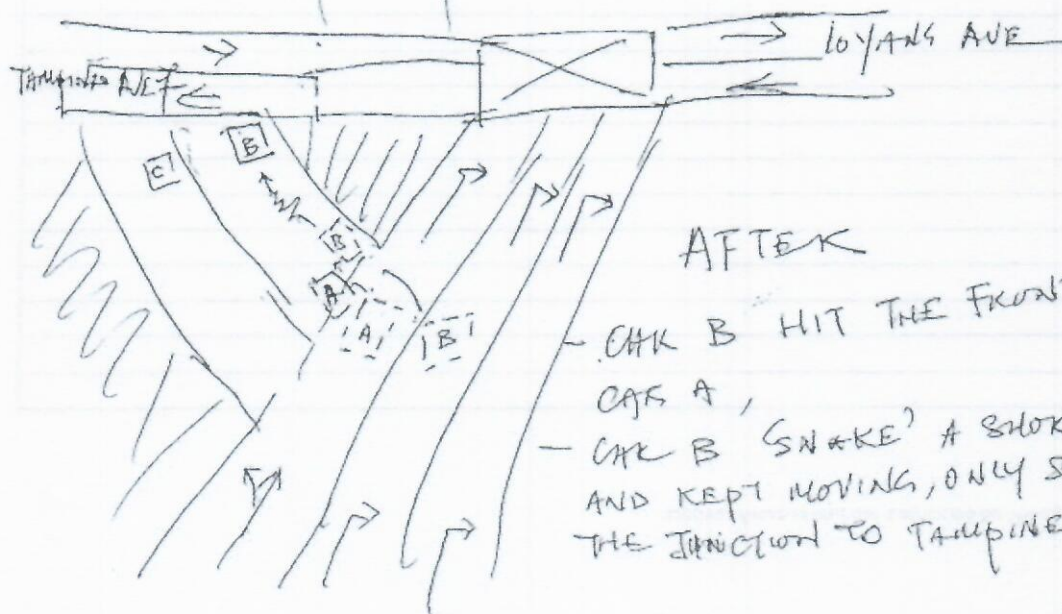 LOYANG AVE
TAMPINES AVE 7
C
B
B
A
A
B
AFTER
- CAR B HIT THE FRON
CAR A,
- CAR B 'SNAKE' A SHOR
AND KEPT MOVING, ONLY S
THE JUNCTION TO TAMPINE